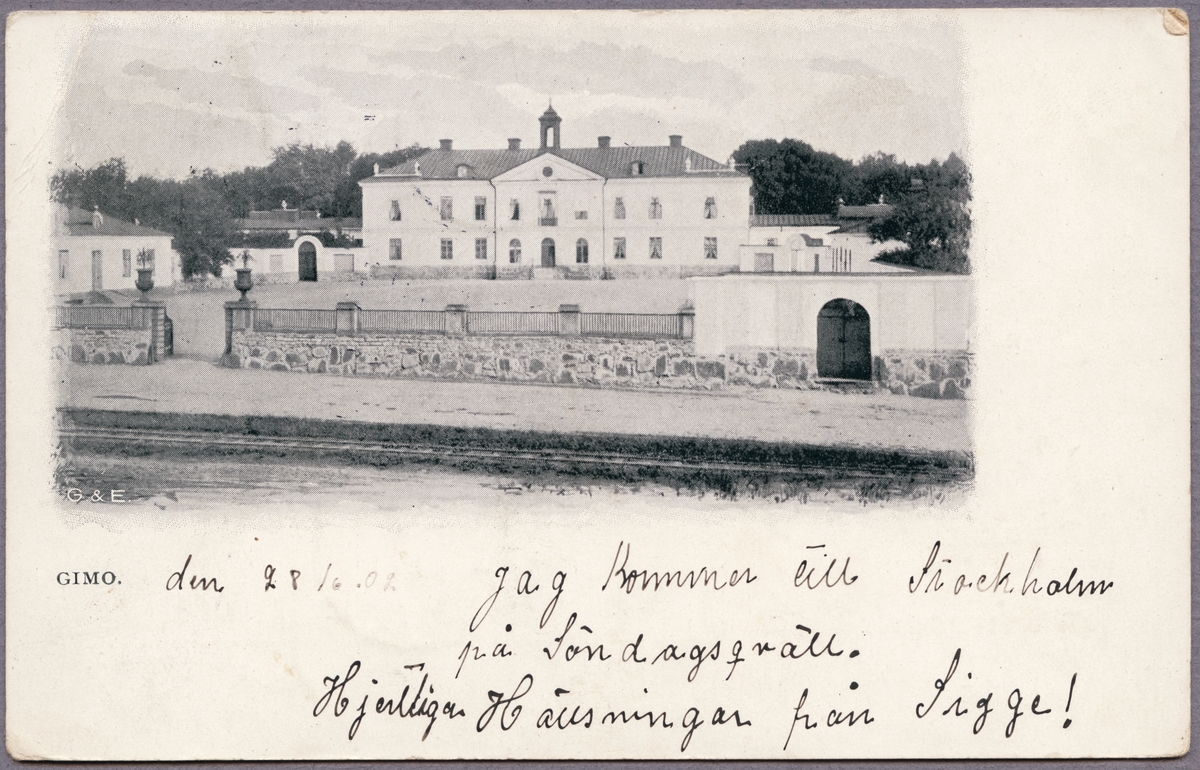 G & E.
GIMO. den 28/6.02 Jag Kommer till Stockholm
på Söndagsqväll.
Hjertliga Hälsningar från Sigge!